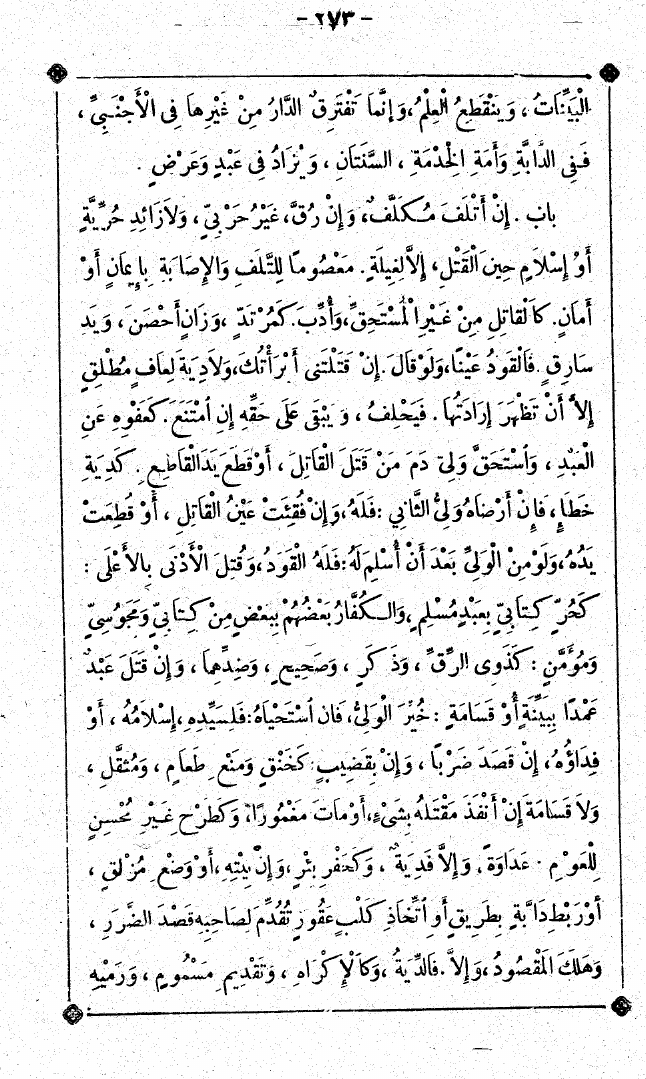 - ٢٧٣ -
الْبَيِّنَاتُ ، وَيَنْقَطِعُ الْعِلْمُ ، وَإِنَّمَا تَفْتَرِقُ الدَّارُ مِنْ غَيْرِهَا فِى الْأَجْنَبِىِّ ،
فَفِى الدَّابَّةِ وَأَمَةِ الْخِدْمَةِ ، السَّنَتَانِ ، وَيُزَادُ فِى عَبْدٍ وَعَرْضٍ .
باب . إِنْ أَتْلَفَ مُكَلَّفٌ ، وَإِنْ رُقَّ ، غَيْرُ حَرْبِىٍّ ، وَلَا زَائِدِ حُرِّيَّةٍ
أَوْ إِسْلَامٍ حِينَ الْقَتْلِ ، إِلَّا لِغِيلَةٍ . مَعْصُومًا لِلتَّلَفِ وَالْإِصَابَةِ بِإِيمَانٍ أَوْ
أَمَانٍ . كَالْقَاتِلِ مِنْ غَيْرِ الْمُسْتَحِقِّ ، وَأُدِّبَ . كَمُرْتَدٍّ ، وَزَانٍ أَحْصَنَ ، وَيَدِ
سَارِقٍ . فَالْقَوَدُ عَيْنًا ، وَلَوْ قَالَ . إِنْ قَتَلْتَنِى أَبْرَأْتُكَ ، وَلَا دِيَةَ لِعَافٍ مُطْلِقٍ
إِلَّا أَنْ تَظْهَرَ إِرَادَتُهَا . فَيَحْلِفُ ، وَيَبْقَى عَلَى حَقِّهِ إِنِ امْتَنَعَ . كَعَفْوِهِ عَنِ
الْعَبْدِ ، وَاسْتَحَقَّ وَلِىُّ دَمَ مَنْ قَتَلَ الْقَاتِلَ ، أَوْ قَطَعَ يَدَ الْقَاطِعِ . كَدِيَةِ
خَطَإٍ ، فَإِنْ أَرْضَاهُ وَلِىُّ الثَّانِي : فَلَهُ ، وَإِنْ فُقِئَتْ عَيْنُ الْقَاتِلِ ، أَوْ قُطِعَتْ
يَدُهُ ، وَلَوْ مِنْ الْوَلِىِّ بَعْدَ أَنْ أُسْلِمَ لَهُ : فَلَهُ الْقَوَدُ ، وَقُتِلَ الْأَدْنَى بِالْأَعْلَى :
كَحُرٍّ كِتَابِىٍّ بِعَبْدٍ مُسْلِمٍ ، وَالْكُفَّارُ بَعْضُهُمْ بِبَعْضٍ مِنْ كِتَابِىٍّ وَمَجُوسِىٍّ
وَمُؤَمَّنٍ : كَذَوِى الرِّقِّ ، وَذَكَرٍ ، وَصَحِيحٍ ، وَضِدِّهِمَا ، وَإِنْ قَتَلَ عَبْدٌ
عَمْدًا بِبَيِّنَةٍ أَوْ قَسَامَةٍ : خُيِّرَ الْوَلِىُّ ، فَإِنْ اسْتَحْيَاهُ : فَلِسَيِّدِهِ ، إِسْلَامُهُ ، أَوْ
فِدَاؤُهُ ، إِنْ قَصَدَ ضَرْبًا ، وَإِنْ بِقَضِيبٍ : كَخَنْقٍ وَمَنْعِ طَعَامٍ ، وَمُثَقَّلٍ ،
وَلَا قَسَامَةَ إِنْ أَنْفَذَ مَقْتَلَهُ بِشَىْءٍ ، أَوْ مَاتَ مَغْمُورًا ، وَكَطَرْحِ غَيْرِ مُحْسِنٍ
لِلْعَوْمِ . عَدَاوَةً ، وَإِلَّا فَدِيَةٌ ، وَكَحَفْرِ بِئْرٍ ، وَإِنْ بِبَيْتِهِ ، أَوْ وَضْعِ مُزْلِقٍ ،
أَوْ رَبْطِ دَابَّةٍ بِطَرِيقٍ أَوِ اتِّخَاذِ كَلْبٍ عَقُورٍ تُقُدِّمَ لِصَاحِبِهِ قَصْدَ الضَّرَرِ ،
وَهَلَكَ الْمَقْصُودُ ، وَإِلَّا . فَالدِّيَةُ ، وَكَالْإِكْرَاهِ ، وَتَقْدِيمِ مَسْمُومٍ ، وَرَمْيِهِ